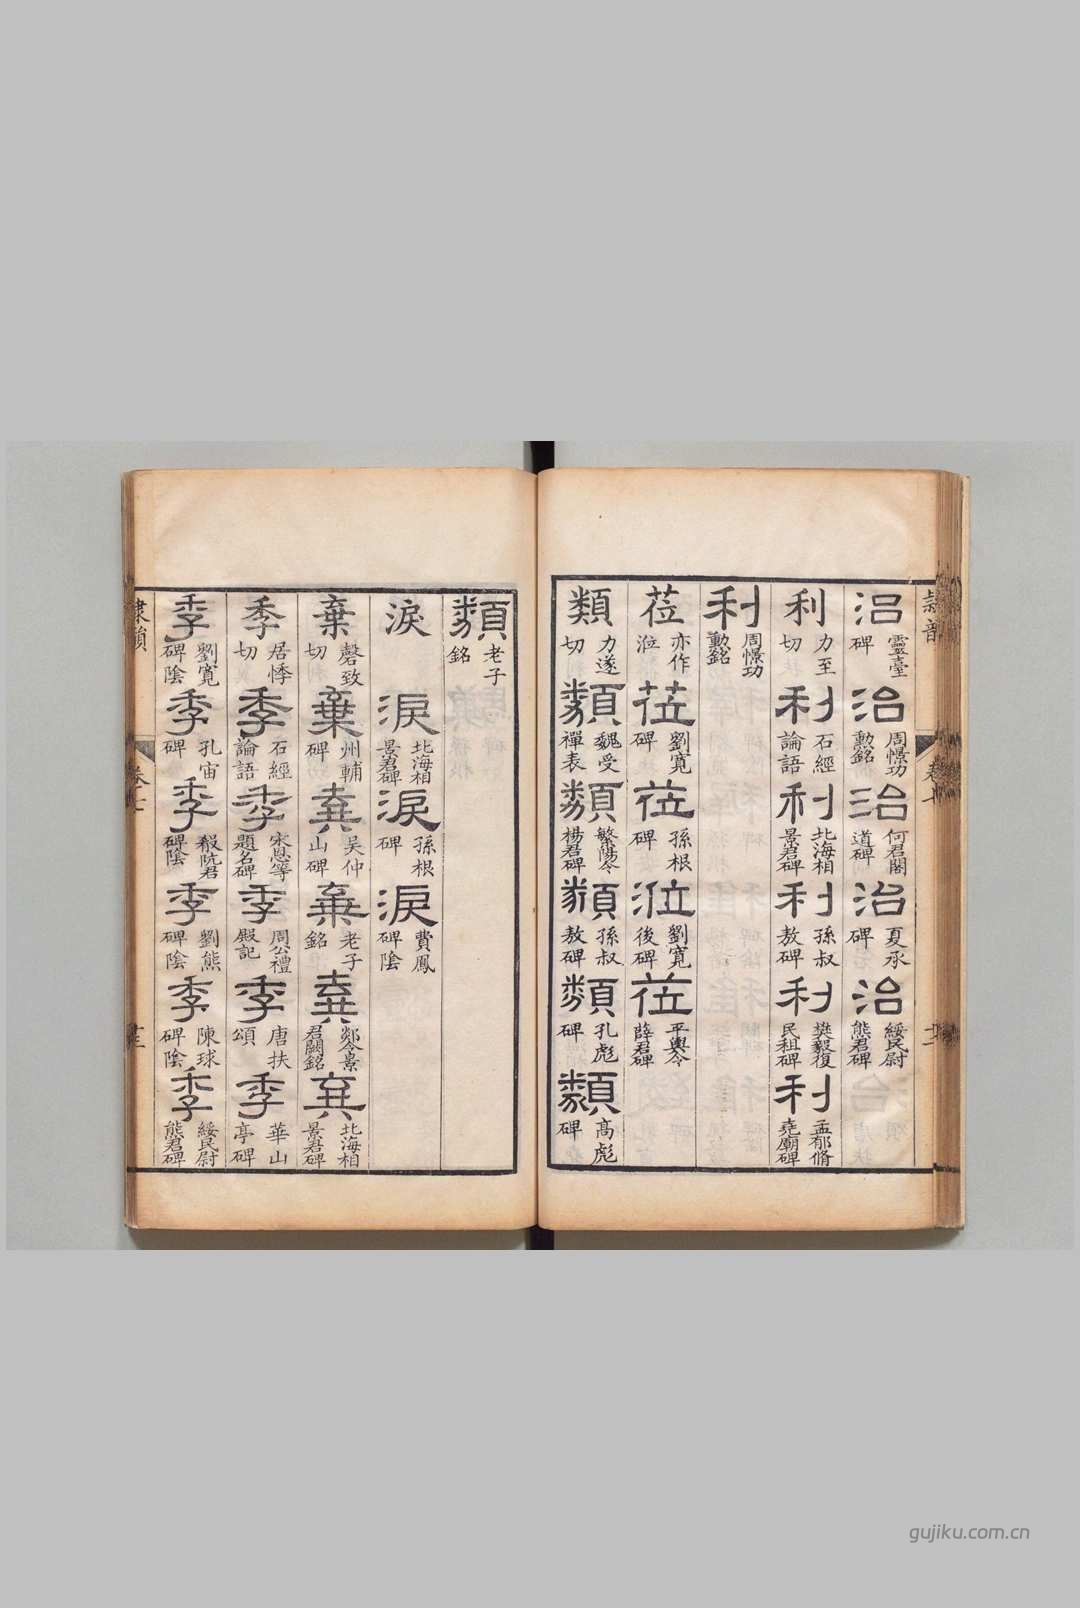 隸韻
卷七
治 靈臺碑 治 周憬功勲銘 治 何君閣道碑 治 夏承碑 治 綏民尉熊君碑
利 力至切 利 石經論語 利 北海相景君碑 利 孫叔敖碑 利 樊毅復民租碑 利 孟郁脩堯廟碑
利 周憬功勲銘
莅 亦作涖 莅 劉寬碑 莅 孫根碑 涖 劉寬後碑 莅 平輿令薛君碑
類 力遂切 類 魏受禪表 類 繁陽令楊君碑 類 孫叔敖碑 類 孔彪碑 類 高彪碑
類 老子銘
淚 淚 北海相景君碑 淚 孫根碑 淚 費鳳碑陰
棄 磬致切 棄 州輔碑 棄 吳仲山碑 棄 老子銘 棄 郯令景君闕銘 棄 北海相景君碑
季 居悸切 季 石經論語 季 宋恩等題名碑 季 周公禮殿記 季 唐扶頌 季 華山亭碑
季 劉寬碑陰 季 孔宙碑 季 殽阬君碑陰 季 劉熊碑陰 季 陳球碑陰 季 綏民尉熊君碑
隸韻
gujiku.com.cn